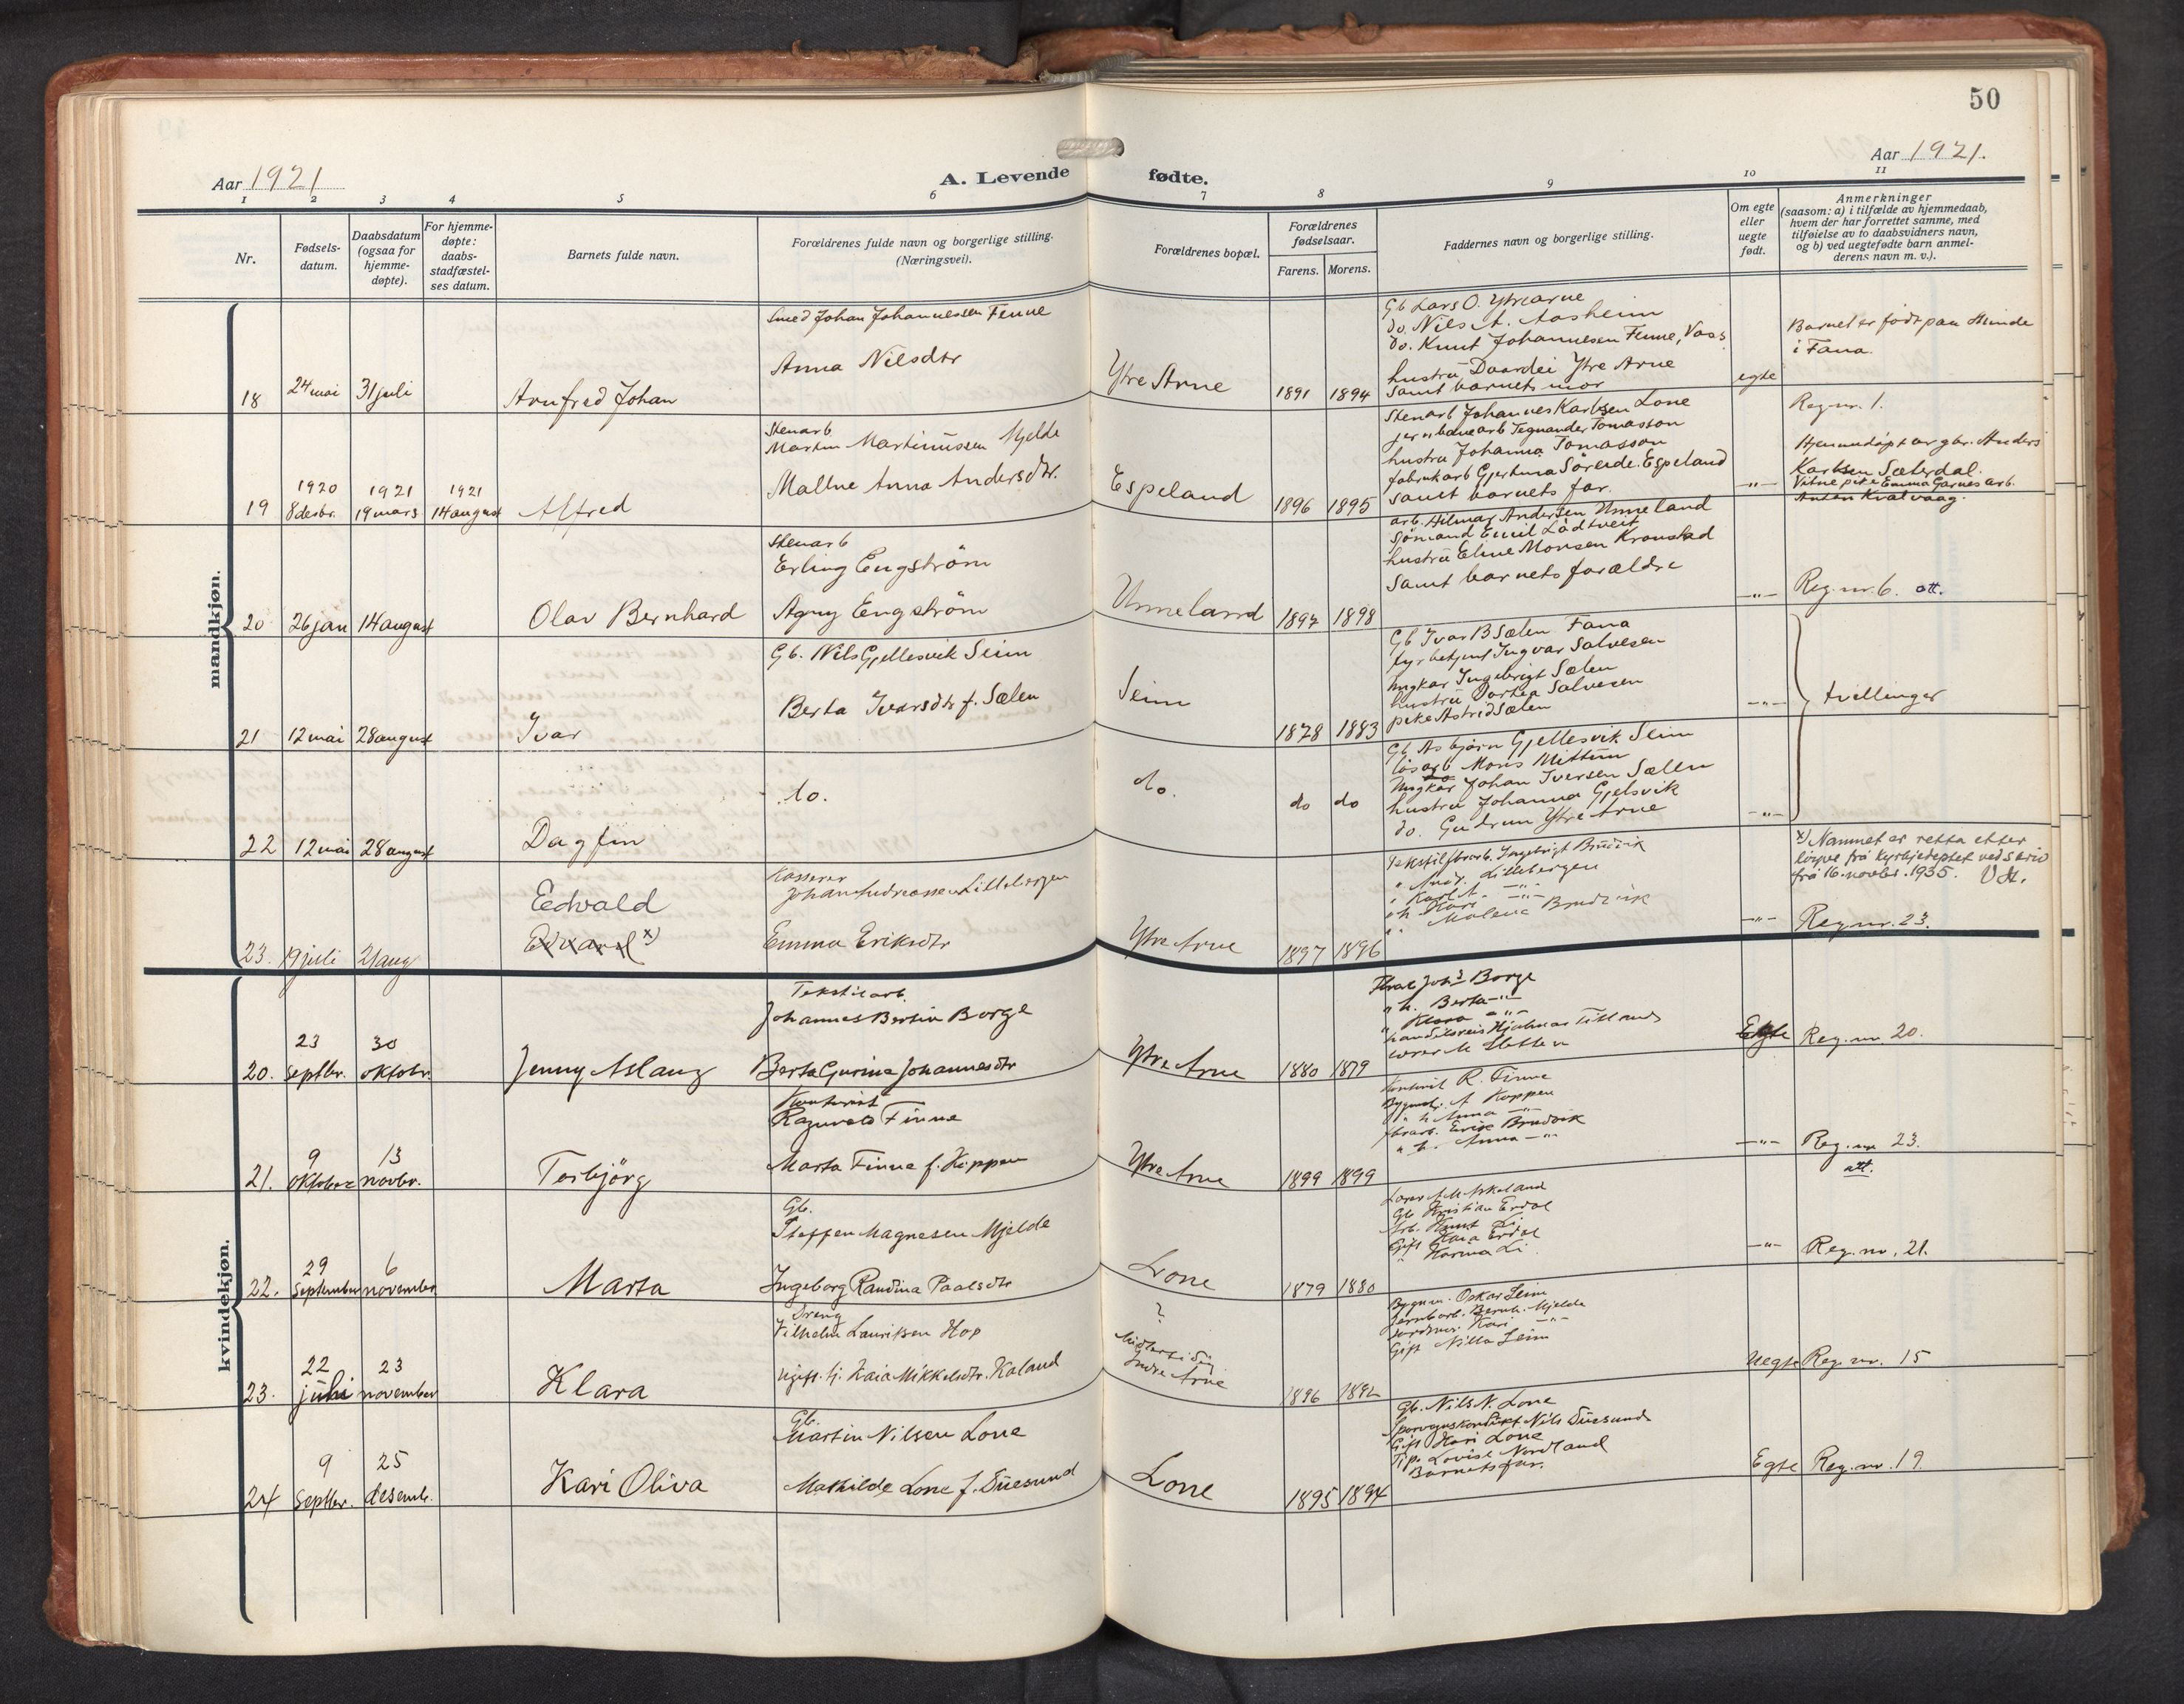 50
Aar 1921
A. Levende fødte.
Aar 1921.
1 2 3 4 5 6 7 8 9 10 11
Nr.
Fødsels-
datum.
Daabsdatum
(ogsaa for
hjemme-
døpte).
For hjemme-
døpte:
daabs-
stadfæstel-
ses datum.
Barnets fulde navn.
Forældrenes fulde navn og borgerlige stilling.
(Næringsvei).
Forældrenes bopæl.
Forældrenes
fødselsaar.
Farens. Morens.
Faddernes navn og borgerlige stilling.
Om egte
eller
uegte
født.
Anmerkninger
(saasom: a) i tilfælde av hjemmedaab,
hvem der har forrettet samme, med
tilføielse av to daabsvidners navn,
og b) ved uegtefødte barn anmel-
derens navn m. v.).
mandkjøn.
18
24 mai
31 juli
Arnfred Johan
Smed Johan Johannessen Finne
Anna Nilsdtr
Ytre Arne
1891 1894
Gb Lars O. Ytrearne
do. Nils A. Aasheim
do. Knut Johannesen Finne, Voss
hustru Daardei Ytre Arne
samt barnets mor
egte
Barnet er født paa Hunde
i Fana.
Reg. nr. 1.
19
1920
8 desbr.
1921
19 mars
1921
14 august
Alfred
Stenarb
Martin Martinussen Mjelde
Mallne Anna Andersdtr.
Espeland
1896 1895
Stenarb Johannes Karlsen Lone
jernbanearb Tegnander Tomasson
hustru Johanna Tomasson
fabrikarb Gjertina Söreide. Espeland
samt barnets far.
-"-
Hjemmedøpt av gbr. Anders
Karlsen Sæterdal.
Vitne pike Emma Garnes arb.
Anton Kvalvaag.
20
26 jan
14 august
Olav Bernhard
Stenarb
Erling Engström
Agny Engström
Unneland
1897 1898
arb. Hilmar Andersen Unneland
Sjømand Emil Lådtveit
hustru Eline Monsen Kronstad
Samt barnets forældre
-"-
Reg. nr. 6. att.
21
12 mai
28 august
Ivar
Gb. Nils Gjellesvik Seim
Berta Ivarsdtr f. Sælen
Seim
1878 1883
Gb Ivar B Sælen Fana
fyrbetjent Ingvar Salvesen
Ungkar Ingebrigt Sælen
hustru Dortea Salvesen
pike Astrid Sælen
-"-
tvillinger
22
12 mai
28 august
Dagfin
do.
do.
do do
Gb Asbjørn Gjellesvik Seim
løsarb Mons Mittun
Ungkar Johan Iversen Sælen
hustru Johanna Gjelsvik
do. Gudrun Ytre Arne
-"-
23.
19 juli
21 aug
Eedvald
Edvard x)
Kasserer
Johan Andreassen Lillebergen
Emma Eriksdtr
Ytre Arne
1897 1896
Tekstilfbrarb. Ingebrigt Brudvik
" Andr. Lillebergen
" Karl A. -"-
" h. Kari -"-
" Malena Brudvik
-"-
x) Namnet er retta etter
løyve frå kyrkjedeptet ved skriv
frå 16. novbr. 1935. V H.
Reg. nr. 23.
kvindekjøn.
20.
23
septbr.
30
oktobr.
Jenny Aslaug
Tekstilarb.
Johannes Bertin Borge
Berta Gurina Johannesdtr
Ytre Arne
1880 1879
Fbrarb Johs Borge
" h. Berta -"-
" Klara -"-
handelsreis Hjalmar Titland
lærer M Sletten
Egte
Reg. nr. 20.
21.
9
oktober
13
novbr.
Torbjörg
Kontorist
Ragnvald Finne
Marta Finne f. Koppen
Ytre Arne
1899 1899
Kontorist R. Finne
Bygmstr. A Koppen
" h Anna -"-
fbrarb. Erik Brudvik
" h. Anna -"-
-"-
Reg. nr 23.
att.
22.
29
September
6
november
Marta
Gb.
Steffen Magnesen Mjelde
Ingeborg Randina Paalsdtr
Lone
1879 1880
Lærer A M Askeland
Gb Kristian Erdal
Arb. Knut Li
Gift Kaia Erdal
" Karina Li.
-"-
Reg. nr. 21.
23.
22
juli
23
november
Klara
Dreng
Vilhelm Lauritsen Hop
ugift. tj. Kaia Mikkelsdtr. Kaland
?
Midlertidig
Indre Arne
1896 1892
Bygnm. Oskar Seim
Jernbarb. Bernh. Mjelde
Jordmor Kari -"-
Gift Nilla Seim
Uegte
Reg. nr. 15
24
9
Septbr.
25
desemb.
Kari Oliva
Gb.
Martin Nilsen Lone
Mathilde Lone f. Duesund
Lone
1895 1894
Gb. Nils N. Lone
Sporvognskondukt Nils Duesund
Gift Kari Lone
Tjp. Lovise Nordland
Barnets far.
Egte
Reg. nr. 19.